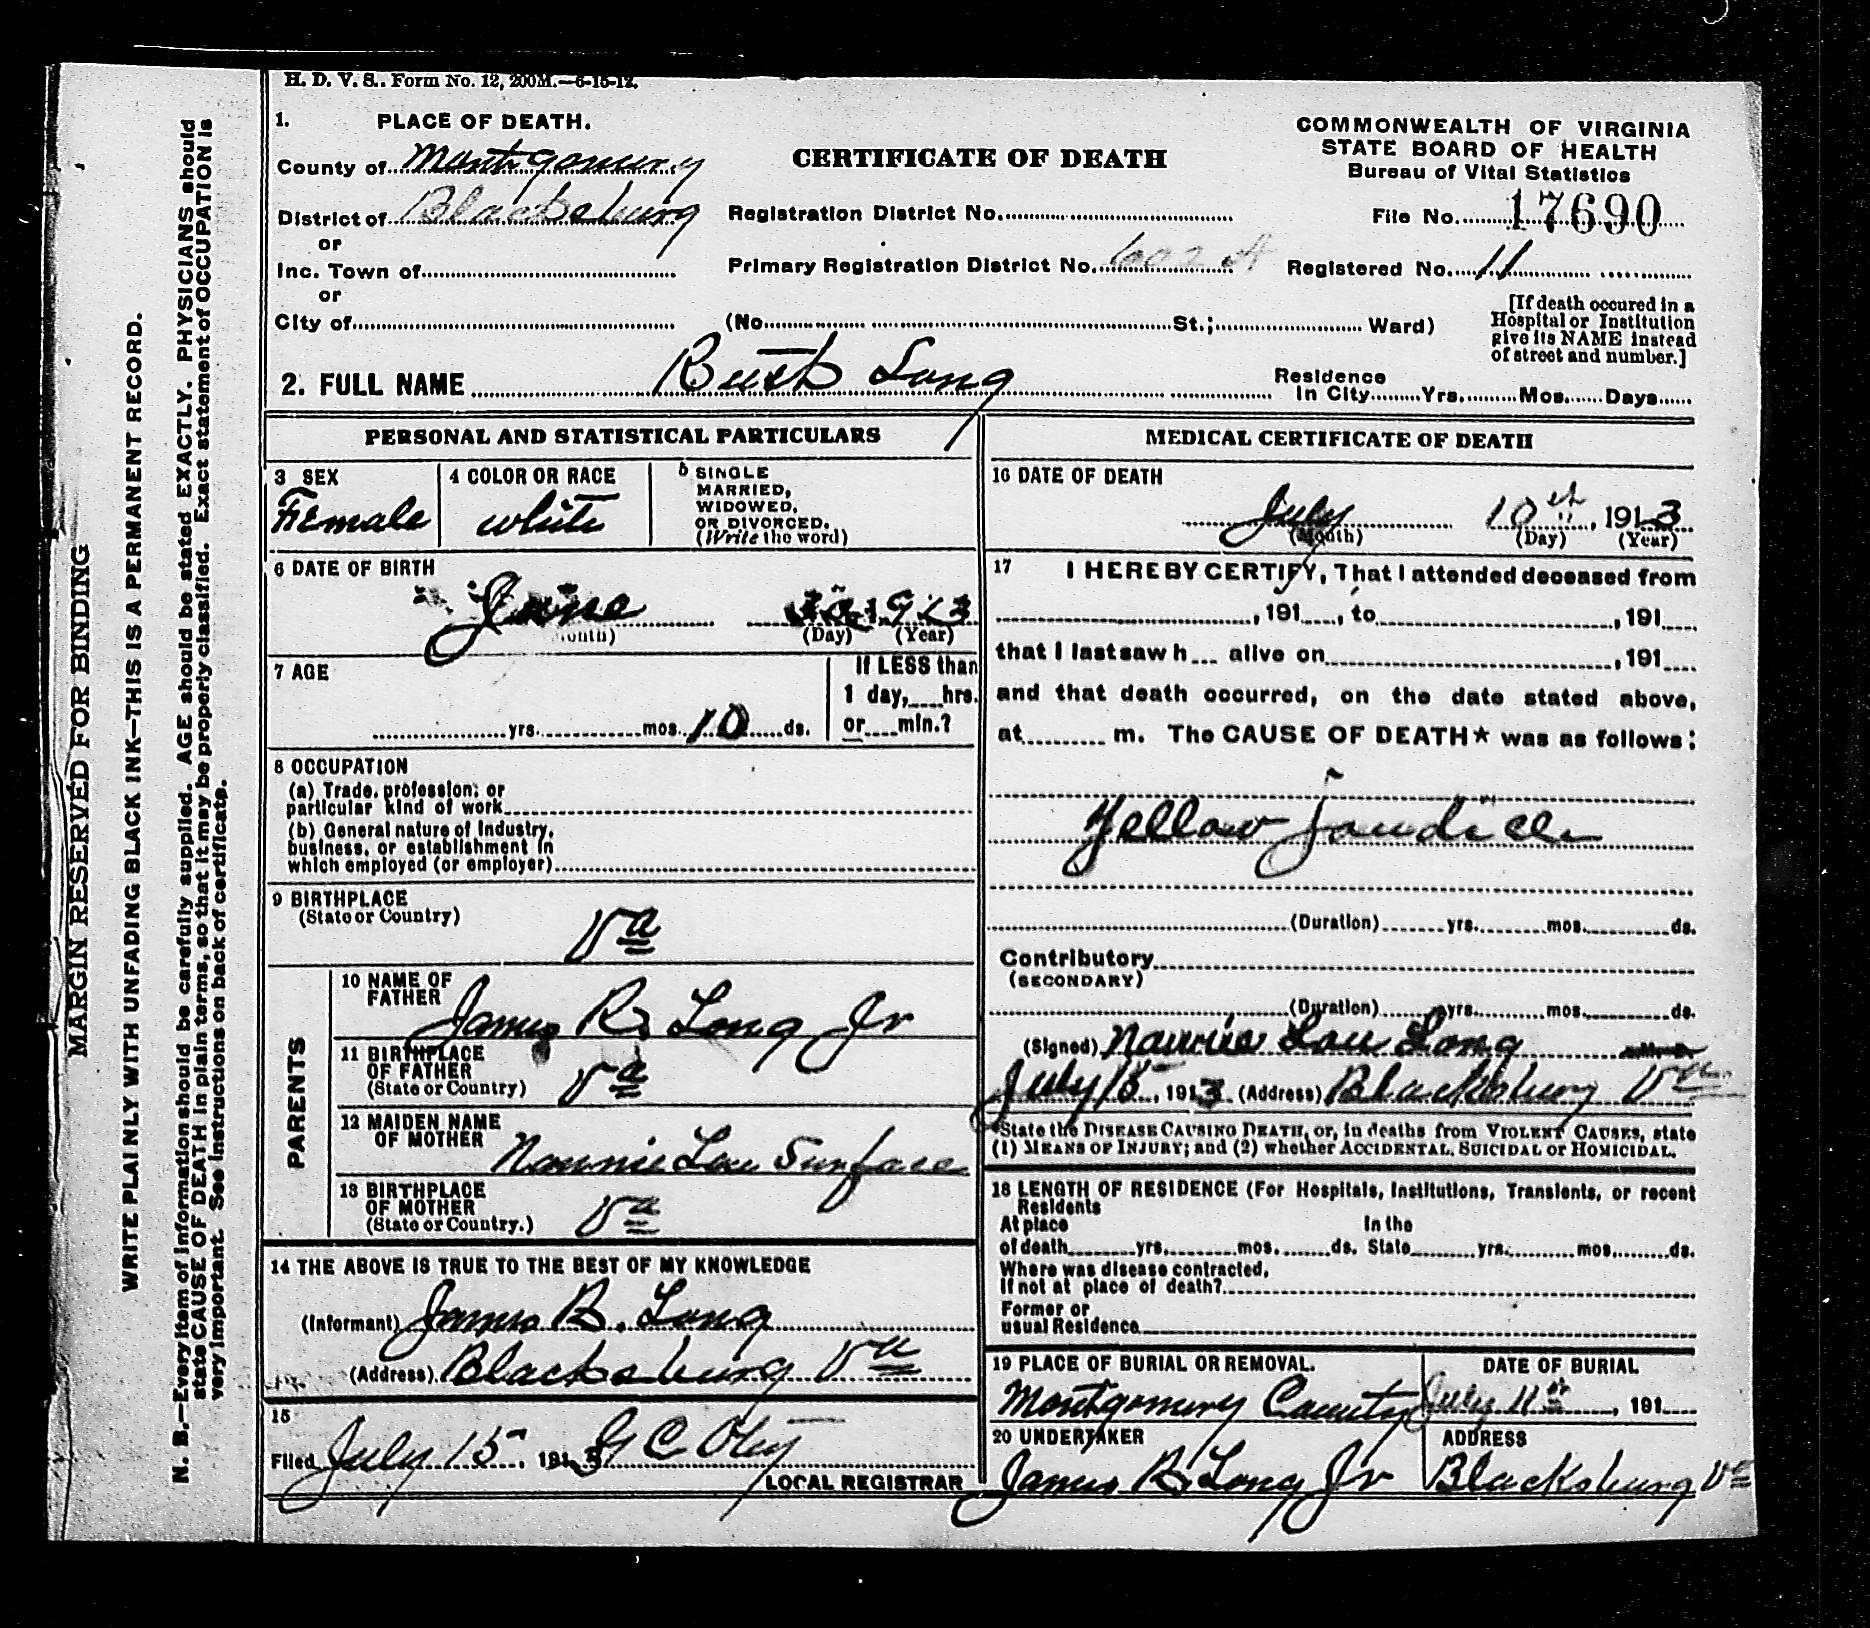 H. D. V. S.. Form No. 12, 200M.—6-15-12.
1. PLACE OF DEATH.
County of Montgomery
District of Blacksburg
or
Inc. Town of
or
City of
CERTIFICATE OF DEATH
Registration District No.
Primary Registration District No. 602 A
(No. St.; Ward)
COMMONWEALTH OF VIRGINIA
STATE BOARD OF HEALTH
Bureau of Vital Statistics
File No. 17690
Registered No. 11
[If death occured in a
Hospital or Institution
give its NAME instead
of street and number.]
2. FULL NAME Ruth Long
Residence
In City Yrs. Mos. Days
PERSONAL AND STATISTICAL PARTICULARS
3 SEX
Female
4 COLOR OR RACE
white
5 SINGLE
MARRIED,
WIDOWED,
OR DIVORCED.
(Write the word)
6 DATE OF BIRTH
June 1913
(Month) (Day) (Year)
7 AGE
yrs. mos. 10 ds.
If LESS than
1 day, hrs.
or min.?
8 OCCUPATION
(a) Trade, profession, or
particular kind of work
(b) General nature of Industry,
business, or establishment in
which employed (or employer)
9 BIRTHPLACE
(State or Country)
Va
PARENTS
10 NAME OF
FATHER
James R. Long Jr
11 BIRTHPLACE
OF FATHER
(State or Country)
Va
12 MAIDEN NAME
OF MOTHER
Nannie Lou Surface
13 BIRTHPLACE
OF MOTHER
(State or Country.)
Va
14 THE ABOVE IS TRUE TO THE BEST OF MY KNOWLEDGE
(Informant) James R. Long
(Address) Blacksburg Va
15
Filed July 15, 1913 C Otey
LOCAL REGISTRAR
MEDICAL CERTIFICATE OF DEATH
16 DATE OF DEATH
July 10th, 1913
(Month) (Day) (Year)
17 I HEREBY CERTIFY, That I attended deceased from
, 191 , to , 191
that I last saw h alive on , 191
and that death occurred, on the date stated above,
at m. The CAUSE OF DEATH* was as follows:
Yellow Jaudice
(Duration) yrs. mos. ds.
Contributory
(SECONDARY)
(Duration) yrs. mos. ds.
(Signed) Nannie Lou Long
July 15, 1913 (Address) Blacksburg Va
*State the DISEASE CAUSING DEATH, or, in deaths from VIOLENT CAUSES, state
(1) MEANS OF INJURY; and (2) whether ACCIDENTAL, SUICIDAL or HOMICIDAL.
18 LENGTH OF RESIDENCE (For Hospitals, Institutions, Transients, or recent
Residents
At place In the
of death yrs. mos. ds. State yrs. mos. ds.
Where was disease contracted,
If not at place of death?
Former or
usual Residence
19 PLACE OF BURIAL OR REMOVAL.
Montgomery County
DATE OF BURIAL
July 11th, 191
20 UNDERTAKER
James R. Long Jr
ADDRESS
Blacksburg Va
MARGIN RESERVED FOR BINDING
WRITE PLAINLY WITH UNFADING BLACK INK—THIS IS A PERMANENT RECORD.
N. B.—Every item of information should be carefully supplied. AGE should be stated EXACTLY. PHYSICIANS should
state CAUSE OF DEATH in plain terms, so that it may be properly classified. Exact statement of OCCUPATION is
very important. See instructions on back of certificate.